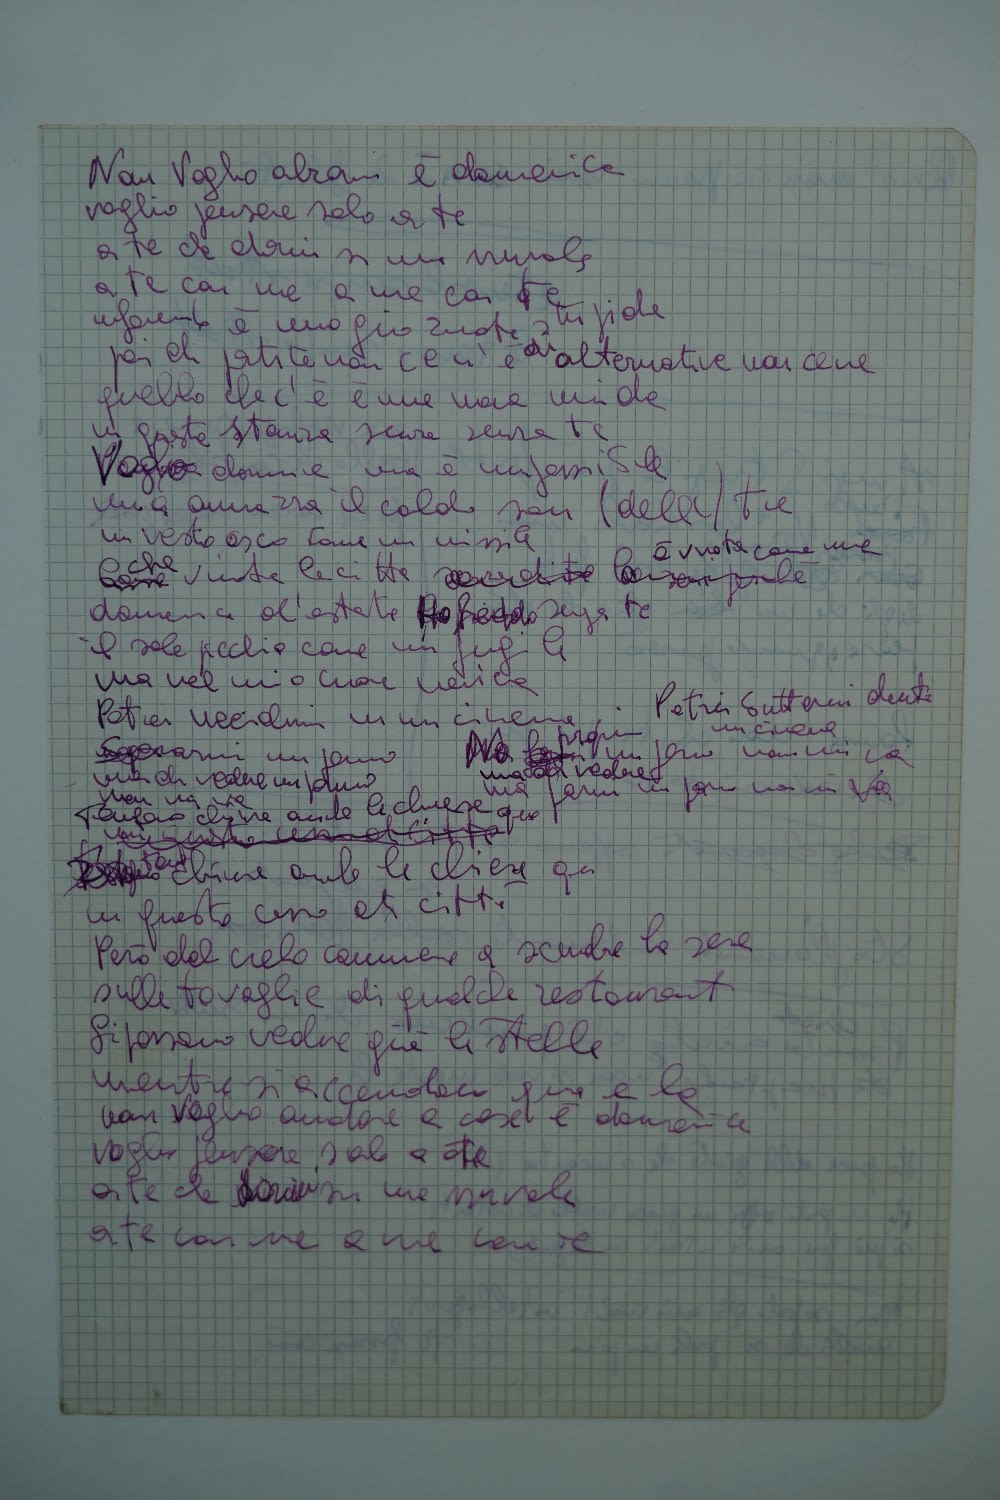 Non Voglio alzarmi è domenica
voglio pensare solo a te
a te che dormi su una nuvola
a te con me a me con te
è una giornata stupida
poi di partite non ce n'è alternative non ce ne
quello che c'è è una
in questa stanza senza senza te
Voglio dormire ma è impossibile
mi ammazza il caldo son (delle) tre
mi vesto esco come un missile
che vuota la città è vuota come me
domenica d'estate freddo senza te
il sole picchia come un pugile
ma nel mio cuore nevica
Potrei uccidermi in un cinema Potrei buttarmi dentro
un cinema
un porno No proprio un porno non mi va
ma di vedere un porno ma di vedere
non mi va ma porno un porno non mi va
Tengono chiuse anche le chiese qua
chiuse anche le chiese qua
in questo cesso di città
Però dal cielo comincia a scendere la sera
sulle tovaglie di qualche restaurant
Si possono vedere già le stelle
mentre si accendono qua e là
non Voglio andare a casa è domenica
voglio pensare solo a te
a te che dormi su una nuvola
a te con me a me con te